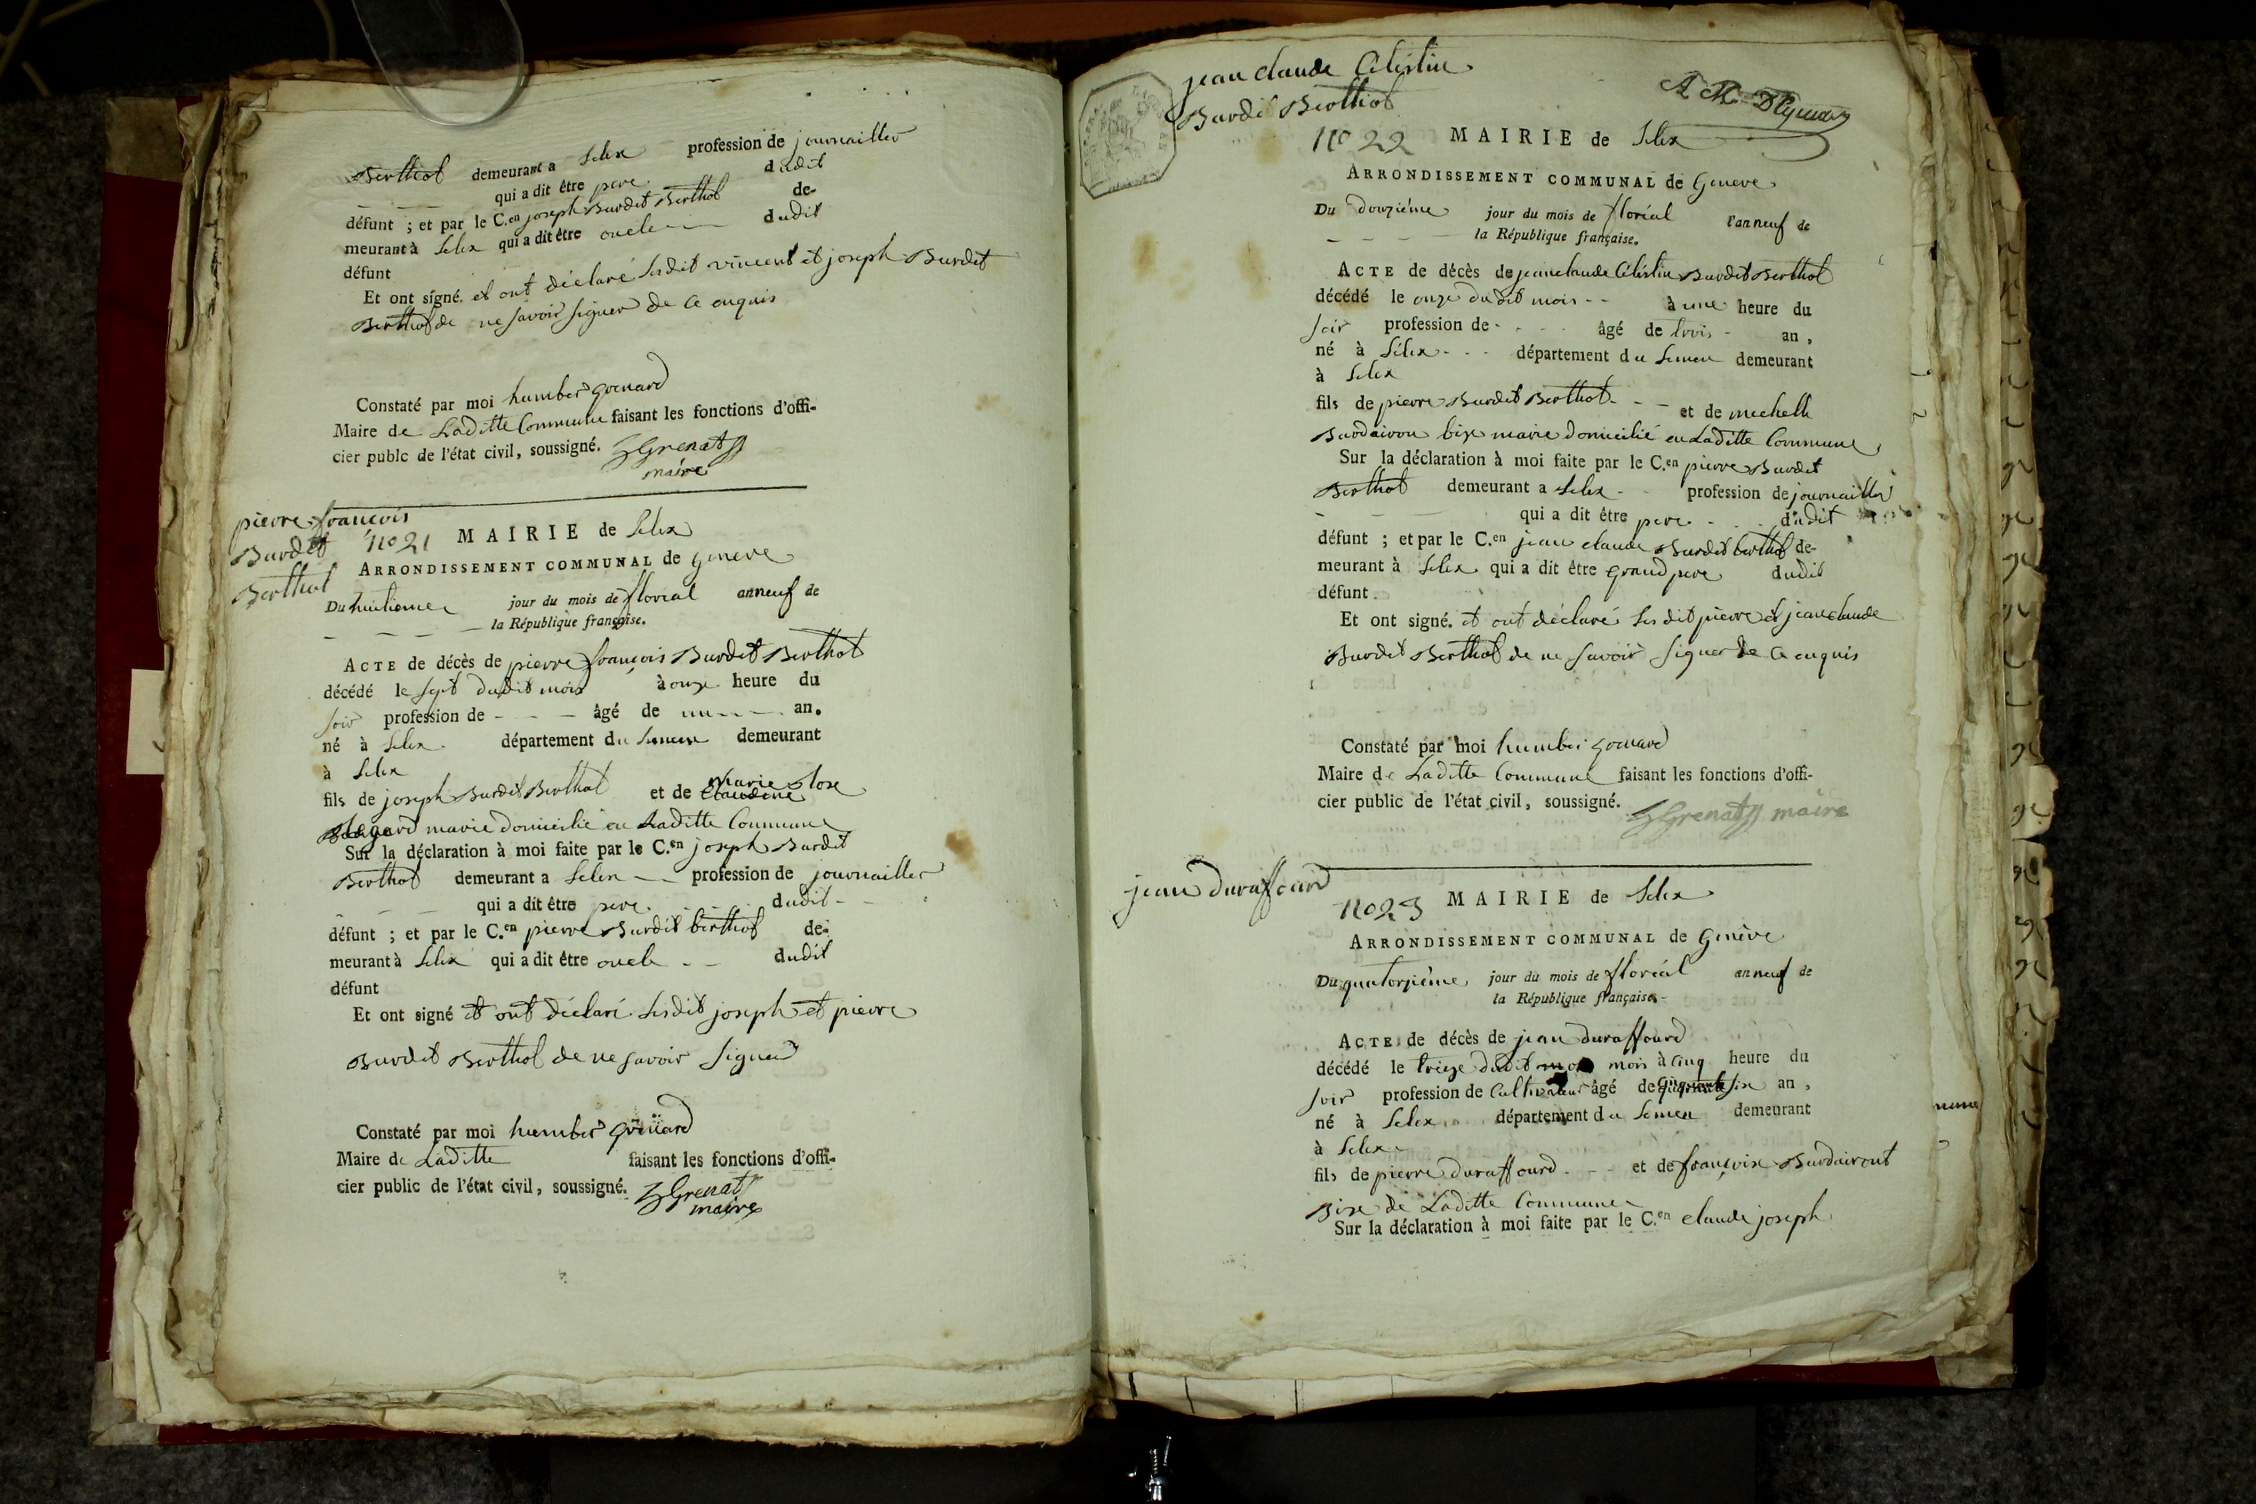 Berthot demeurant a Lelex profession de journaillier
qui a dit être pere dudit
défunt ; et par le C.en joseph Burdet Berthot de-
meurant à Lelex qui a dit être oncle dudit
défunt
Et ont signé. et ont déclaré lesdit vincent et joseph Burdet
Berthot de ne savoir signer de ce enquis
Constaté par moi humber grenard
Maire de Laditte Commune faisant les fonctions d'offi-
cier publc de l'état civil, soussigné. Grenard
maire
pierre françois
Burdet
Berthot
no 21 MAIRIE de Lelex
ARRONDISSEMENT COMMUNAL de geneve
Du huitieme jour du mois de floreal an neuf de
la République française.
ACTE de décès de pierre françois Burdet Berthot
décédé le sept dudit mois à onze heure du
soir profession de - - - âgé de un an.
né à Lelex département du Leman demeurant
à Lelex
fils de joseph Burdet Berthot et de marie
marie domicilié en Laditte Commune
Sur la déclaration à moi faite par le C.en joseph Burdet
Berthot demeurant a Lelex profession de journaillier
qui a dit être pere dudit
défunt ; et par le C.en pierre Burdet berthot de-
meurant à Lelex qui a dit être oncle dudit
défunt
Et ont signé et ont déclaré lesdit joseph et pierre
Burdet Berthot de ne savoir signer
Constaté par moi humber grenard
Maire de Laditte faisant les fonctions d'offi-
cier public de l'état civil, soussigné. Grenard
maire
jean claude Celestin
Burdet Berthot
no 22 MAIRIE de Lelex
ARRONDISSEMENT COMMUNAL de Geneve
Du douziéme jour du mois de floréal l'an neuf de
la République française.
ACTE de décès de jean claude Céléstin Burdet Berthot
décédé le onze dudit mois - - à une heure du
soir profession de - - - âgé de trois - an,
né à Lélex - - - département du Leman demeurant
à Lelex
fils de pierre Burdet Berthot - - et de michelle
Burdairon bize marie domicilié en Laditte Commune
Sur la déclaration à moi faite par le C.en pierre Burdet
Berthot demeurant a Lelex - profession de journaillier
qui a dit être pere dudit
défunt ; et par le C.en jean claude Burdet berthot de-
meurant à Lelex qui a dit être grand pere dudit
défunt
Et ont signé. et ont déclaré lesdit pierre et jean claude
Burdet Berthot de ne savoir signer de ce enquis
Constaté par moi humber grenard
Maire de Laditte Commune faisant les fonctions d'offi-
cier public de l'état civil, soussigné. Grenard maire
jean duraffourd
no 23 MAIRIE de Lelex
ARRONDISSEMENT COMMUNAL de Genève
Du quatorziéme jour du mois de floréal an neuf de
la République française.
ACTE de décès de jean duraffourd
décédé le treize dudit mois à cinq heure du
soir profession de Cultivateur âgé de six an,
né à Lelex département du Leman demeurant
à Lelex
fils de pierre duraffourd - - et de françoise Burdairont
Bize de Laditte Commune
Sur la déclaration à moi faite par le C.en claude joseph